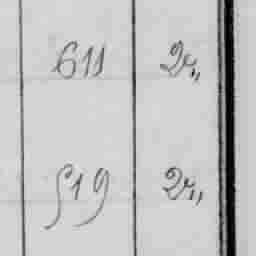 611 2v„
519 2v„